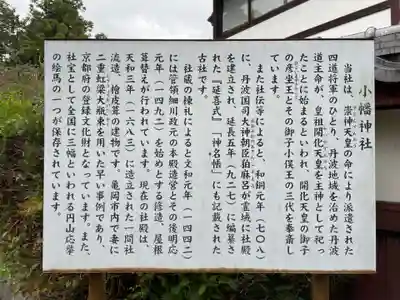 小幡神社
当社は、崇神天皇の命により派遣された
四道将軍のひとり、丹波地域を治めた丹波
道主命が、皇祖開化天皇を主神として祀っ
たことに始まるといわれ、開化天皇の御子
の彦坐王とその御子小俣王の三代を奉斎し
ています。
また社伝等によると、和銅元年（七〇八）
に、丹波国司大神朝臣狛麻呂が霊域に社殿
を建立され、延長五年（九二七）に編纂さ
れた『延喜式』「神名帳」にも記載された
古社です。
社蔵の棟札によると文和元年（一四四二
には管領細川政元の本殿造営とその後明応
元年（一四九二）を始めとする造営、屋根
葺替えが行われています。現在の社殿は、
天和三年（一六八三）に造立された一間社
流造、檜皮葺の建物です。亀岡市内で妻に
二重虹梁大瓶束を用いた早い事例であり、
京都府の登録文化財となっています。また、
社宝として全国に三幅といわれる円山応挙
の絵馬の一つが保存されています。